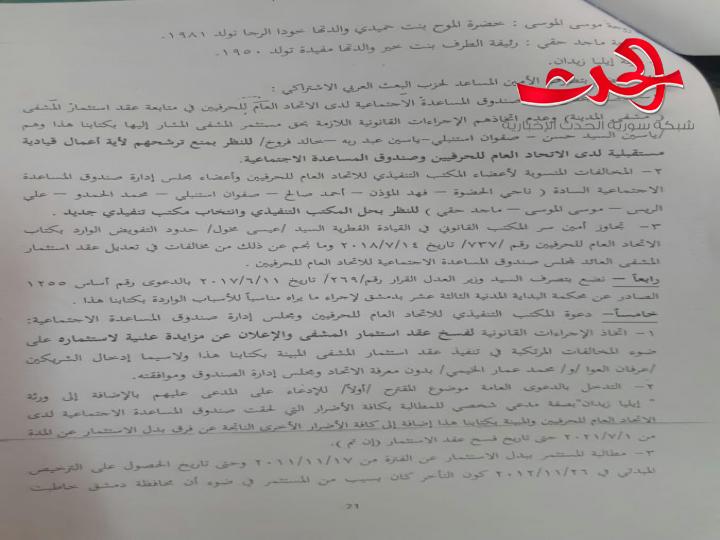 موسى الموسى : خضرة الموح بنت حميدي والدتها خودا الرجا تولد ١٩٨١.
ماجد حقي : رئيفة الطرف بنت خير والدتها مفيدة تولد ١٩٥٠.
إيليا زيدان.
الأمين المساعد لحزب البعث العربي الاشتراكي :
صندوق المساعدة الاجتماعية لدى الاتحاد العام للحرفيين في متابعة عقد استثمار المشفى
( مشفى المدينة) وعدم اتخاذهم الإجراءات القانونية اللازمة بحق مستثمر المشفى المشار إليها بكتابنا هذا وهم
/ياسين السيد حسن – صفوان استنبلي–ياسين عبد ربه –خالد فروخ/ للنظر بمنع ترشحهم لأية أعمال قيادية
مستقبلية لدى الاتحاد العام للحرفيين وصندوق المساعدة الاجتماعية.
٢– المخالفات المنسوبة لأعضاء المكتب التنفيذي للاتحاد العام للحرفيين وأعضاء مجلس إدارة صندوق المساعدة
الاجتماعية السادة ( ناجي الحضوة – فهد المؤذن – أحمد صالح – صفوان استنبلي – محمد الحمدو – علي
الريس – موسى الموسى – ماجد حقي ) للنظر بحل المكتب التنفيذي وانتخاب مكتب تنفيذي جديد .
٣– تجاوز أمين سر المكتب القانوني في القيادة القطرية السيد /عيسى مخول/ حدود التفويض الوارد بكتاب
الاتحاد العام للحرفيين رقم /٧٣٧/ تاريخ ٢٠١٨/٧/١٤ وما نجم عن ذلك من مخالفات في تعديل عقد استثمار
المشفى العائد لمجلس صندوق المساعدة الاجتماعية للاتحاد العام للحرفيين .
رابعاً – نضع بتصرف السيد وزير العدل القرار رقم/٢٦٩/ تاريخ ٢٠١٧/٦/١١ بالدعوى رقم أساس ١٢٥٥
الصادر عن محكمة البداية المدنية الثالثة عشر بدمشق لإجراء ما يراه مناسباً للأسباب الواردة بكتابنا هذا .
خامساً– دعوة المكتب التنفيذي للاتحاد العام للحرفيين ومجلس إدارة صندوق المساعدة الاجتماعية:
١– اتخاذ الإجراءات القانونية لفسخ عقد استثمار المشفى والإعلان عن مزايدة علنية لاستثماره على
ضوء المخالفات المرتكبة في تنفيذ عقد استثمار المشفى المبينة بكتابنا هذا ولاسيما إدخال الشريكين
/عرفان العوا /و/ محمد عمار الخيمي/ بدون معرفة الاتحاد ومجلس إدارة الصندوق وموافقته.
٢– التدخل بالدعوى العامة موضوع المقترح /أولاً/ للإدعاء على المدعى عليهم بالإضافة إلى ورثة
" إيليا زيدان"بصفة مدعي شخصي للمطالبة بكافة الأضرار التي لحقت صندوق المساعدة الاجتماعية لدى
الاتحاد العام للحرفيين والمبينة بكتابنا هذا إضافة إلى كافة الأضرار الأخرى الناتجة عن فرق بدل الاستثمار عن المدة
من ٢٠٢١/٧/١ حتى تاريخ فسخ عقد الاستثمار (إن تم ).
٣– مطالبة المستثمر ببدل الاستثمار عن الفترة من ٢٠١١/١١/١٧ وحتى تاريخ الحصول على الترخيص
المبدئي في ٢٠١٢/١١/٢٦ كون التأخر كان بسبب من المستثمر في ضوء أن محافظة دمشق خاطبت
21
الحدث
شبكة سورية الحدث الإخبارية